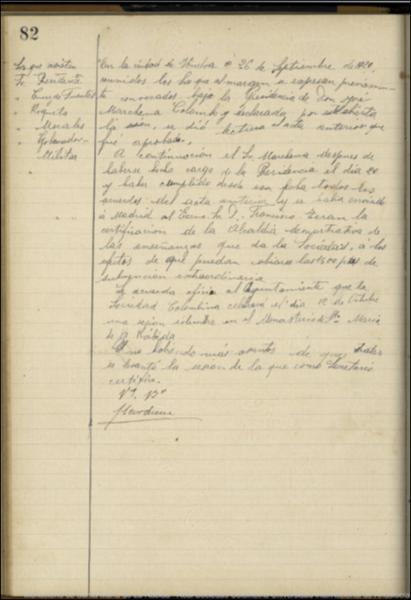 82
Los que asisten
Sr. Presidente
" Cumplido Fuentes
" Roqueta
" Morales
" Gobernador
Militar
En la ciudad de Huelva a 26 de Septiembre de 1920,
reunidos los Sres que al margen se expresan previamen-
te convocados bajo la Presidencia de Don José
Marchena Colombo y declarada por abierta
la sesión, se dió lectura al acta anterior que
fue aprobada.
A continuación el Sr. Marchena después de
haberse hecho cargo de la Presidencia el día 20
y haber cumplido desde esa fecha todos los
acuerdos del acta anterior y se había enviado
a Madrid al Excmo Sr. D. Francisco Teran la
certificación de la Alcaldía demostrativa de
las enseñanzas que da la Sociedad, a los
efectos de que puedan cobrarse las 1500 ptas de
subvención extraordinaria.
Se acuerda oficiar al Ayuntamiento que la
Sociedad Colombina celebrará el día 12 de Octubre
una sesión solemne en el Monasterio de Sta Maria
de la Rábida
Y no habiendo más asuntos de que tratar
se levantó la sesión de la que como Secretario
certifico.
Vº Bº
Marchena